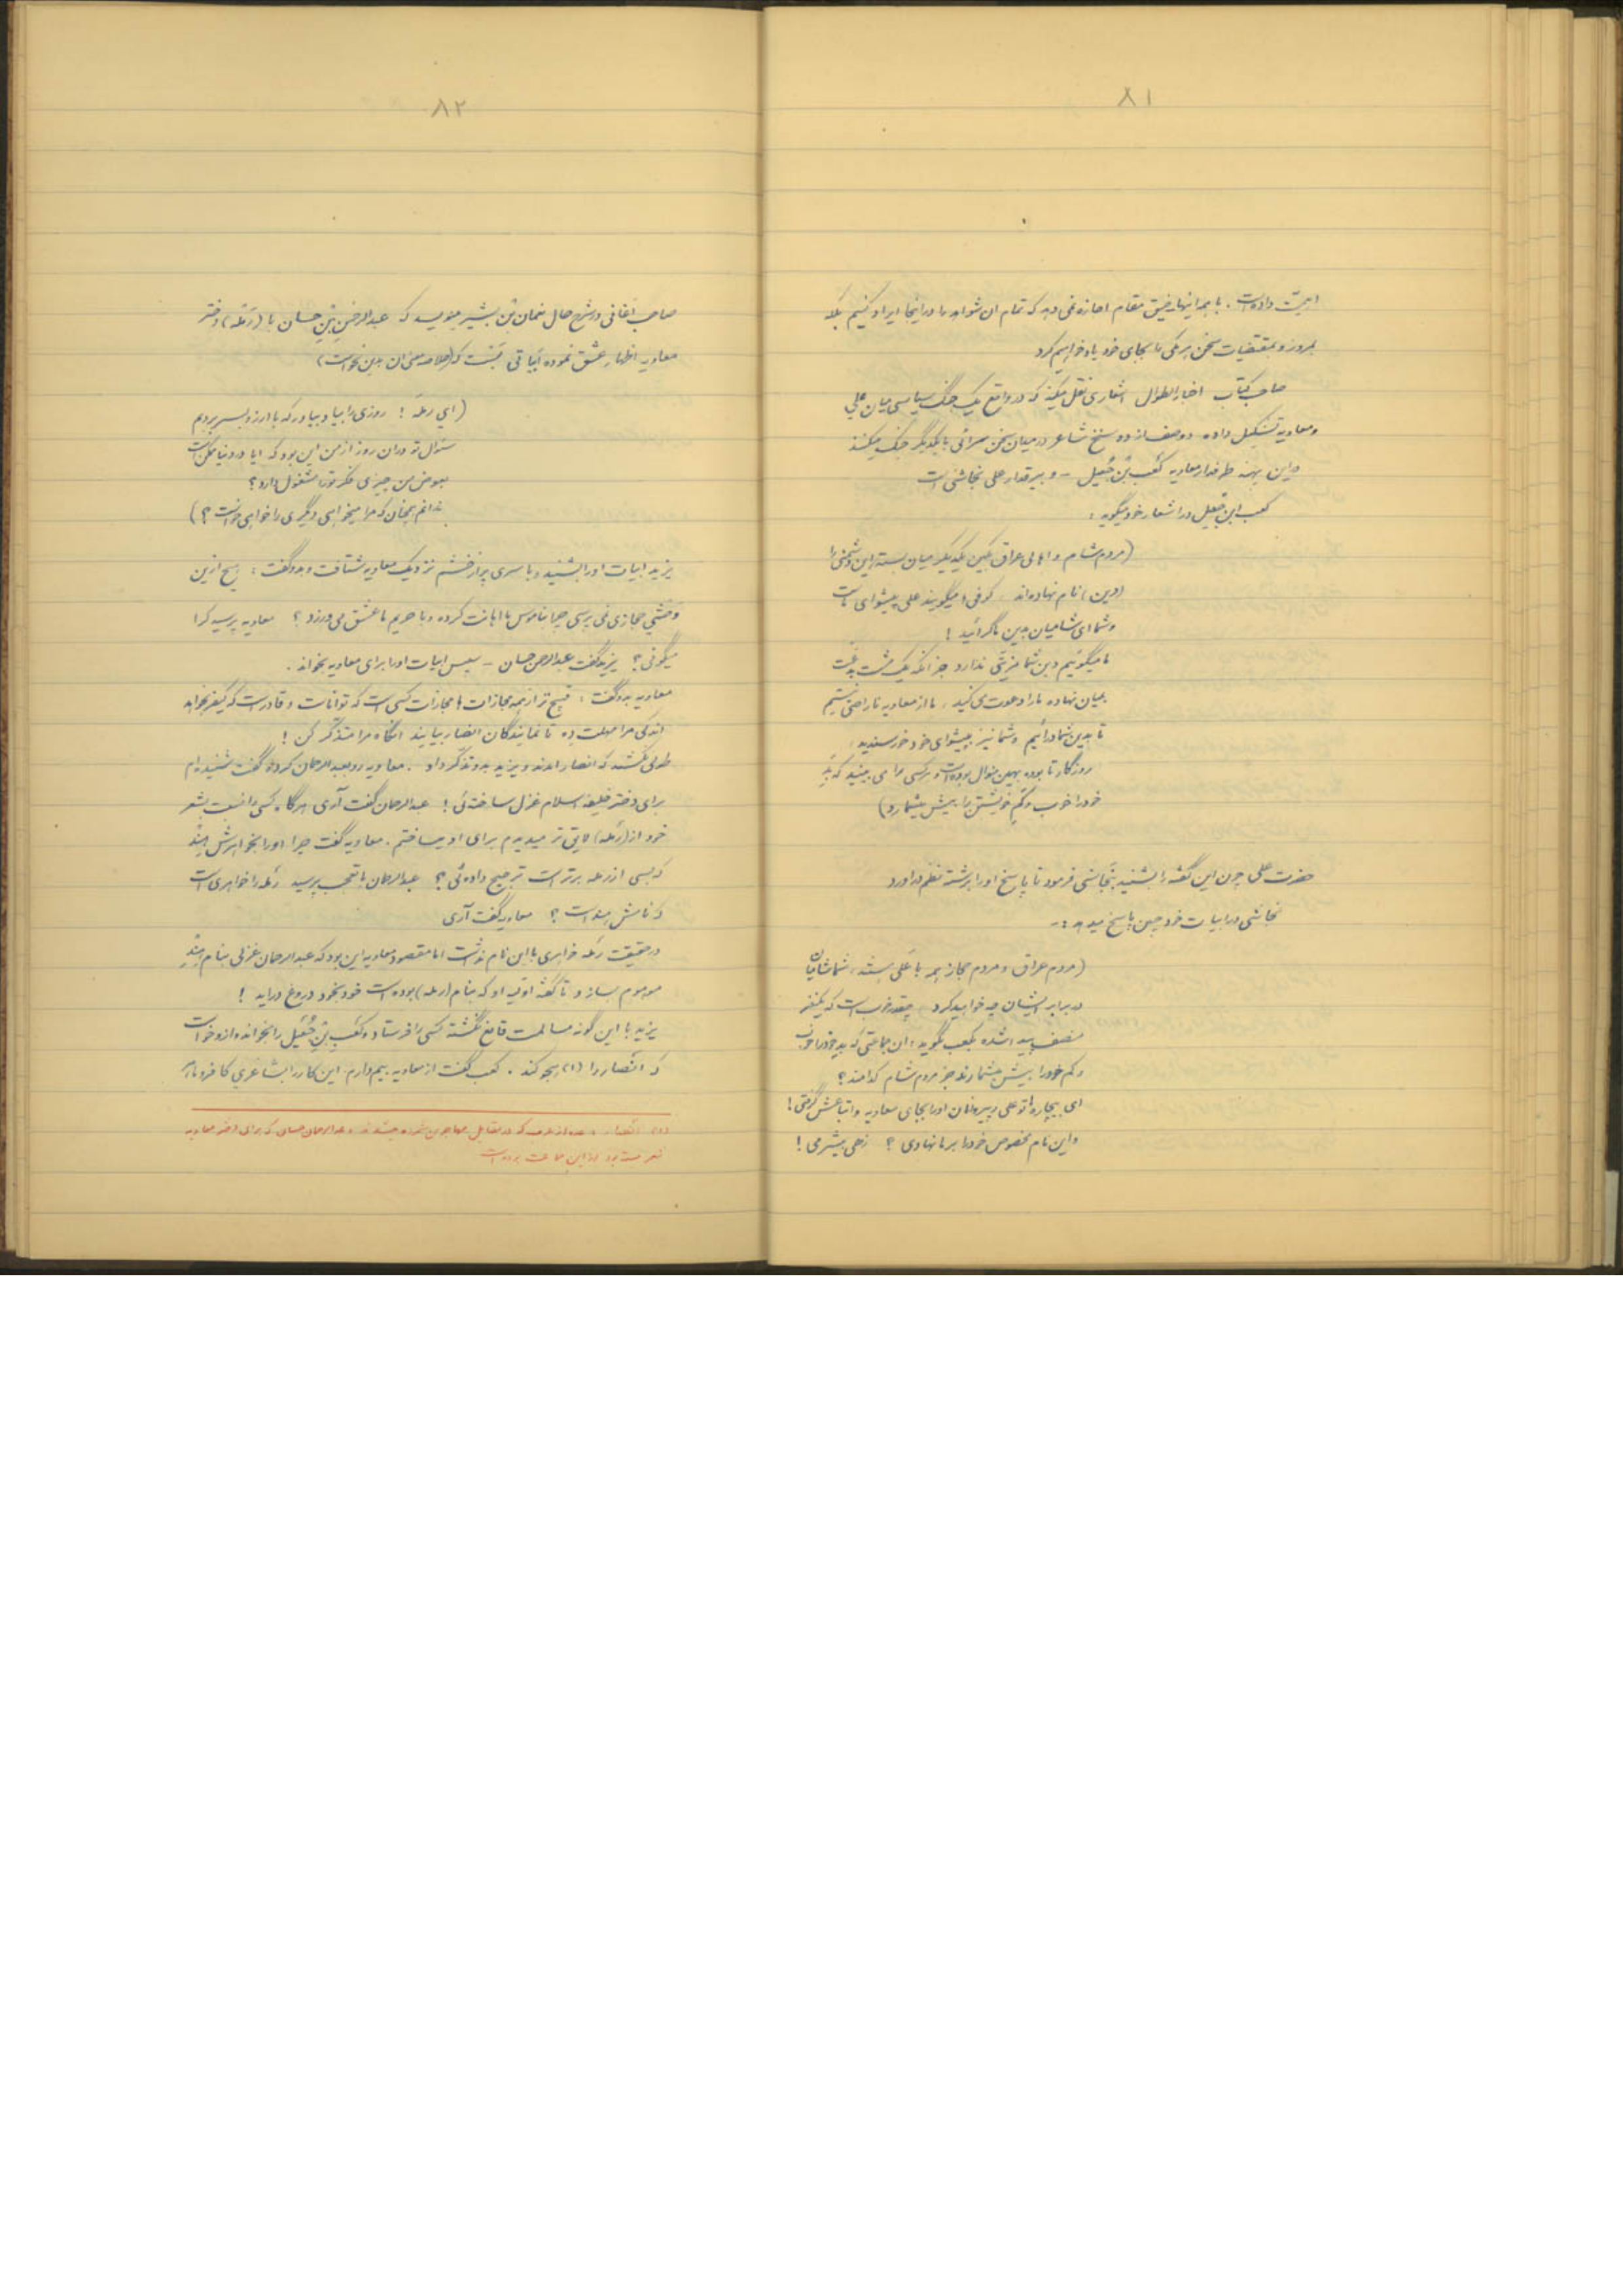 ۸۱
اهمیت داده است . با همه اینها ضیق مقام اجازه نمی دهد که تمام ان شواهد را در اینجا ایراد کنیم بلکه
بمرور و بمقتضیات سخن هر یکی را بجای خود یاد خواهیم کرد
صاحب کتاب اخبار الطوال اشعاری نقل میکند که در واقع یک جنگ سیاسی میان علی
و معاویه تشکیل داده و دو صف از دو سنخ شاعر در میدان سخن سرائی با یکدیگر جنگ میکنند
در این پهنه طرفدار معاویه کعب بن جعیل - و بیرقدار علی نجاشی است
کعب ابن جعیل در اشعار خود میگوید :
(مردم شام و اهالی عراق بکین یکدیگر میان بسته این دشمنی را
(دین) نام نهاده اند . کوفی ها میگویند علی پیشوای ماست
و شما ای شامیان بدین ما گرائید !
ما میگوئیم دین شما مزیتی ندارد جز انکه یک مشت بدعت
بمیان نهاده ما را دعوت می کنید ، ما از معاویه ناراضی نیستیم
تا بدین شما درآئیم و شما نیز به پیشوای خود خورسندید ،
روزگار تا بوده بهمین منوال بوده است و هر کسی را می بینید که بد
خود را خوب و کم خویشتن را بیش میشمارد)
حضرت علی چون این گفته را بشنید بنجاشی فرمود تا پاسخ او را برشته نظم دراورد
نجاشی در ابیات خود چنین پاسخ میدهد :-
(مردم عراق و مردم حجاز همه با علی هستند ، شما شامیان
در برابر ایشان چه خواهید کرد چقدر خوب است که یکنفر
منصف پیدا شده بکعب بگوید : ان جماعتی که بد خود را خوب
و کم خود را بیش میشمارند جز مردم شام کدامند ؟
ای بیچاره تو علی و پیروان او را بجای معاویه و اتباعش گرفتی !
و این نام مخصوص خود را بر ما نهادی ؟ زهی بیشرمی !
۸۲
صاحب اغانی در شرح حال نعمان بن بشیر مینویسد که عبدالرحمن بن حسان با (رمله) دختر
معاویه اظهار عشق نموده ابیاتی گفت که (خلاصه معنی ان چنین است)
(ای رمله ! روزی را بیاد بیاور که با ارزو بسر بردیم
سئوال تو در ان روز از من این بود که ایا در دنیا ممکن است
بعوض من چیزی فکر تو را مشغول دارد ؟
ندانم همچنان که مرا میخواهی دیگری را خواهی خواست ؟)
یزید ابیات او را بشنید و با سری پر از خشم نزدیک معاویه شتافت و بدو گفت : هیچ از این
وحشی حجازی نمی پرسی چرا بناموس ما اهانت کرده و با حریم ما عشق می ورزد ؟ معاویه پرسید کرا
میگوئی ؟ یزید گفت عبدالرحمن حسان - سپس ابیات او را برای معاویه بخواند .
معاویه بدو گفت : قبیح تر از همه مجازات ها مجازات کسی است که تواناست و قادر است که کیفر بخواهد
اندکی مرا مهلت ده تا نمایندگان انصار بیایند انگاه مرا متذکر کن !
طولی نکشید که انصار امدند و یزید بدو تذکر داد . معاویه رو بعبدالرحمان کرده گفت شنیده ام
برای دختر خلیفه اسلام غزل ساخته ئی ! عبدالرحمان گفت آری هر گاه کسی را نسبت بشعر
خود از (رمله) لایق تر میدیدم برای او میساختم . معاویه گفت چرا او را بخواهرش هند
که بسی از رمله برتر است ترجیح داده ئی ؟ عبدالرحمان با تعجب پرسید رمله را خواهری است
که نامش هند است ؟ معاویه گفت آری
در حقیقت رمله خواهری با این نام نداشت اما مقصود معاویه این بود که عبدالرحمان غزلی بنام هند
موهوم بسازد تا گفته اولیه او که بنام (رمله) بوده است خود بخود دروغ دراید !
یزید با این گونه مسالمت قانع نگشته کسی را فرستاد و کعب بن جعیل را بخوانده از او خواست
که انصار را (۱) هجو کند . کعب گفت از معاویه بیم دارم این کار را بشاعری کافر و ماهر
(۱) انصار از عرب که در مقابل مهاجرین و عبدالرحمان حسان که برای دختر معاویه
شعر گفته بود از این جماعت بوده است